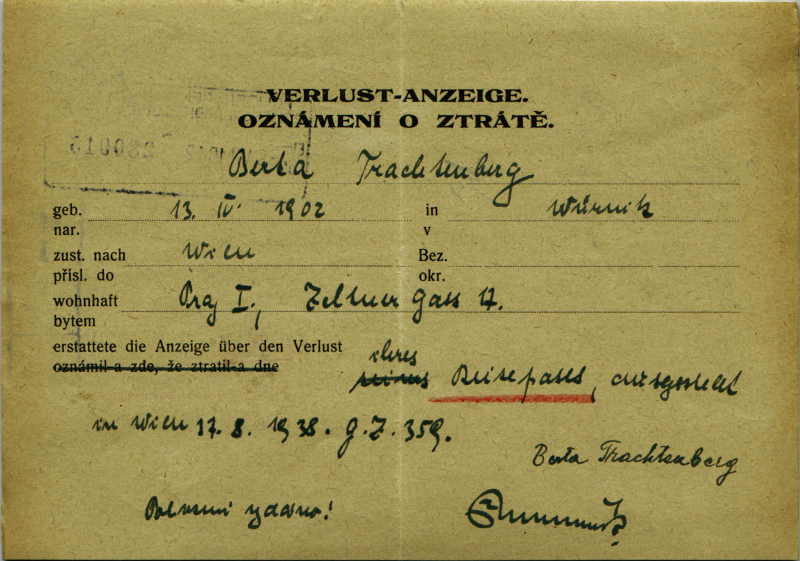 VERLUST-ANZEIGE.
OZNÁMENÍ O ZTRÁTĚ.
Berta Trachtenberg
geb. 13. IV. 1902 in
nar. v
zust. nach Wien Bez.
přísl. do okr.
wohnhaft Prag I., Zeltner Gass 17.
bytem
erstattete die Anzeige über den Verlust ihres
oznámil-a zde, že ztratil-a dne seines Reisepasses, ausgestellt
in Wien 17. 8. 1938. g. Z. 359.
Berta Trachtenberg